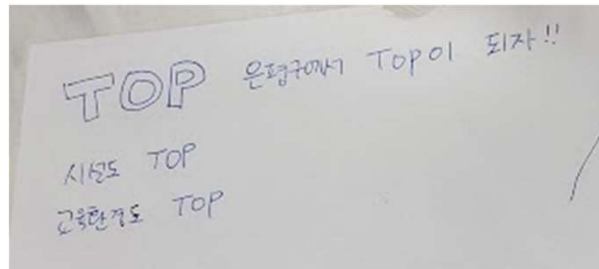 TOP 은평구에서 TOP이 되자!!
시설도 TOP
교육환경도 TOP